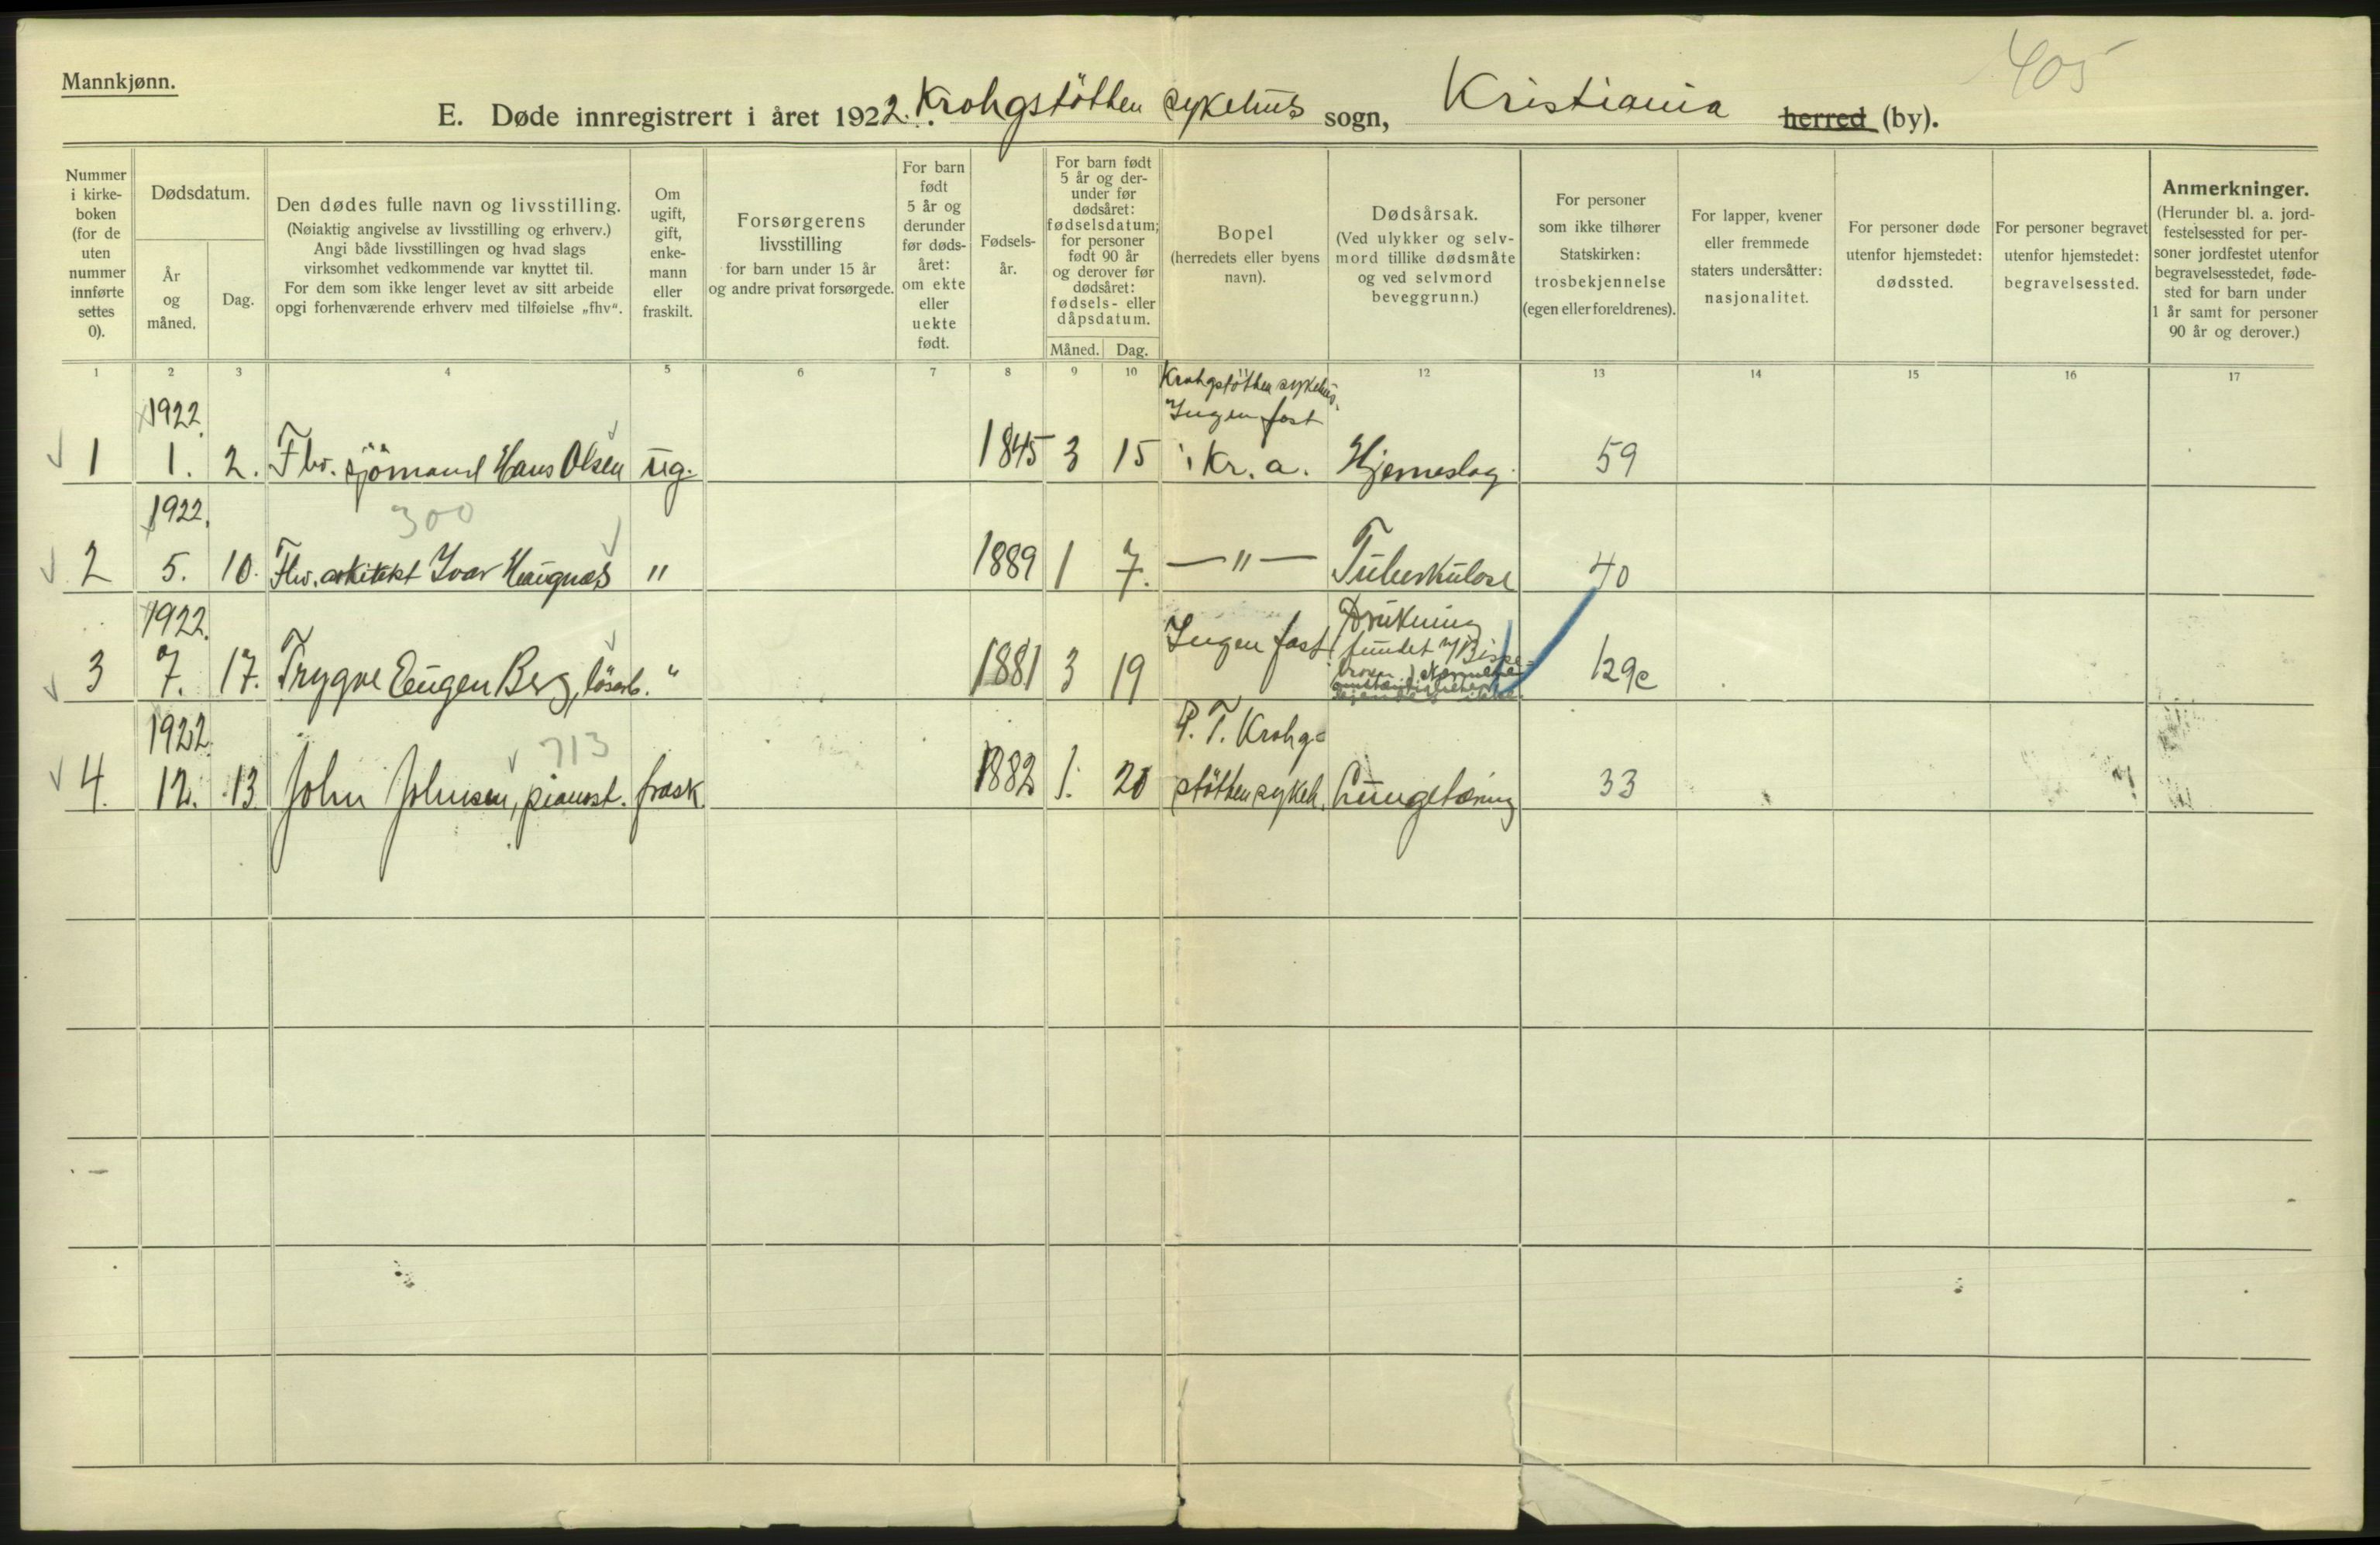 405
Mannkjønn.
E. Døde innregistrert i året 1922. Krohgstötten sykehus sogn, Kristiania herred (by).
Nummer
i kirke-
boken
(for de
uten
nummer
innførte
settes
0).
Dødsdatum.
År
og
måned.
Dag.
Den dødes fulle navn og livsstilling.
(Nøiaktig angivelse av livsstilling og erhverv.)
Angi både livsstillingen og hvad slags
virksomhet vedkommende var knyttet til.
For dem som ikke lenger levet av sitt arbeide
opgi forhenværende erhverv med tilføielse „fhv“.
Om
ugift,
gift,
enke-
mann
eller
fraskilt.
Forsørgerens
livsstilling
for barn under 15 år
og andre privat forsørgede.
For barn
født
5 år og
derunder
før døds-
året:
om ekte
eller
uekte
født.
Fødsels-
år.
For barn født
5 år og der-
under før
dødsåret:
fødselsdatum;
for personer
født 90 år
og derover før
dødsåret:
fødsels- eller
dåpsdatum.
Måned. Dag.
Bopel
(herredets eller byens
navn).
Dødsårsak.
(Ved ulykker og selv-
mord tillike dødsmåte
og ved selvmord
beveggrunn.)
For personer
som ikke tilhører
Statskirken:
trosbekjennelse
(egen eller foreldrenes).
For lapper, kvener
eller fremmede
staters undersåtter:
nasjonalitet.
For personer døde
utenfor hjemstedet:
dødssted.
For personer begravet
utenfor hjemstedet:
begravelsessted.
Anmerkninger.
(Herunder bl. a. jord-
festelsessted for per-
soner jordfestet utenfor
begravelsesstedet, føde-
sted for barn under
1 år samt for personer
90 år og derover.)
1 2 3 4 5 6 7 8 9 10 12 13 14 15 16 17
Krohgstötten sykehus.
1922. Ingen fast
1 1. 2. Fhv. sjömand Hans Olsen ug. 1845 3 15 i Kr. a. Hjerneslag. 59
1922. 300
2 5. 10. Fhv. arkitekt Ivar Haugnæs " 1889 1 7. — " — Tuberkulose 40
1922. Ingen fast Drukning
fundet v/ Bispe-
3 7. 17. Trygve Eugen Berg, lösarb. " 1881 3 19 broen. Nærmere 129e
omstændigheter
kjendes ikke.
1922. 713 P. T. Krohg-
4. 12. 13. John Johnsen, pianist. frask. 1882 1. 20 stötten sykeh. Lungetæring 33